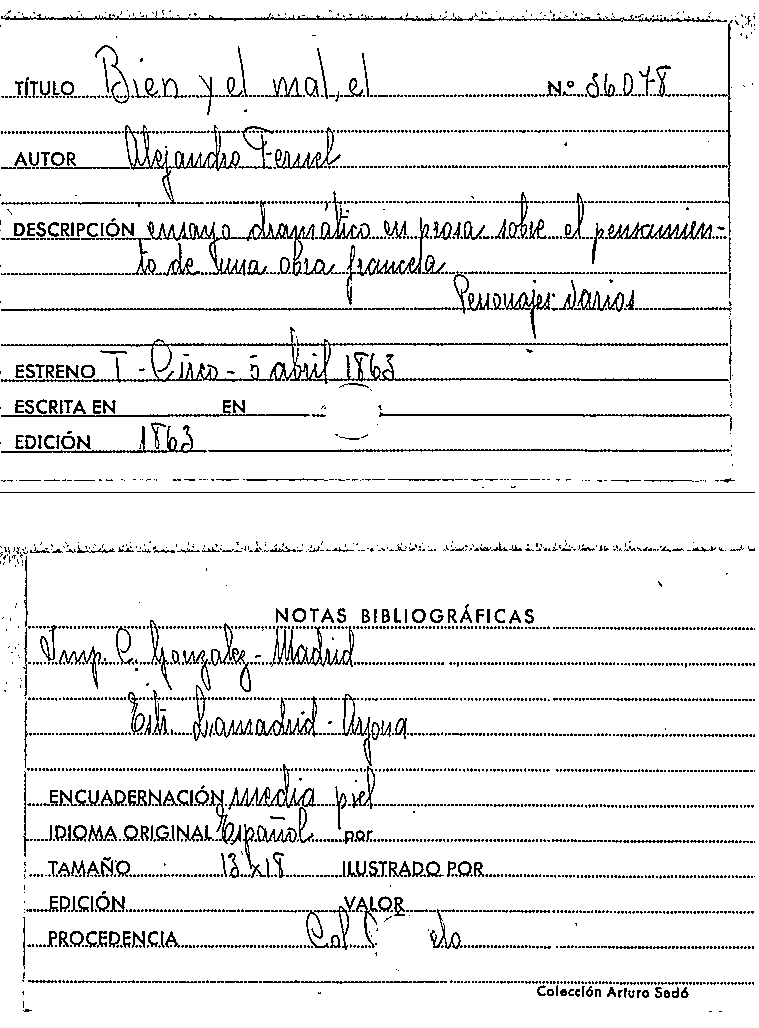 TÍTULO Bien y el mal, el N.º 36078
AUTOR Alejandro Fernel
DESCRIPCIÓN ensayo dramático en prosa sobre el pensamien-
to de una obra francesa
Personajes: Varios
ESTRENO T - Circo - 5 abril 1863
ESCRITA EN EN
EDICIÓN 1863
NOTAS BIBLIOGRÁFICAS
Imp. C. Gonzalez - Madrid
Estr. Lamadrid - Arjona
ENCUADERNACIÓN media piel
IDIOMA ORIGINAL Español por
TAMAÑO 13 x 18 ILUSTRADO POR
EDICIÓN VALOR
PROCEDENCIA Col
Colección Arturo Sedó